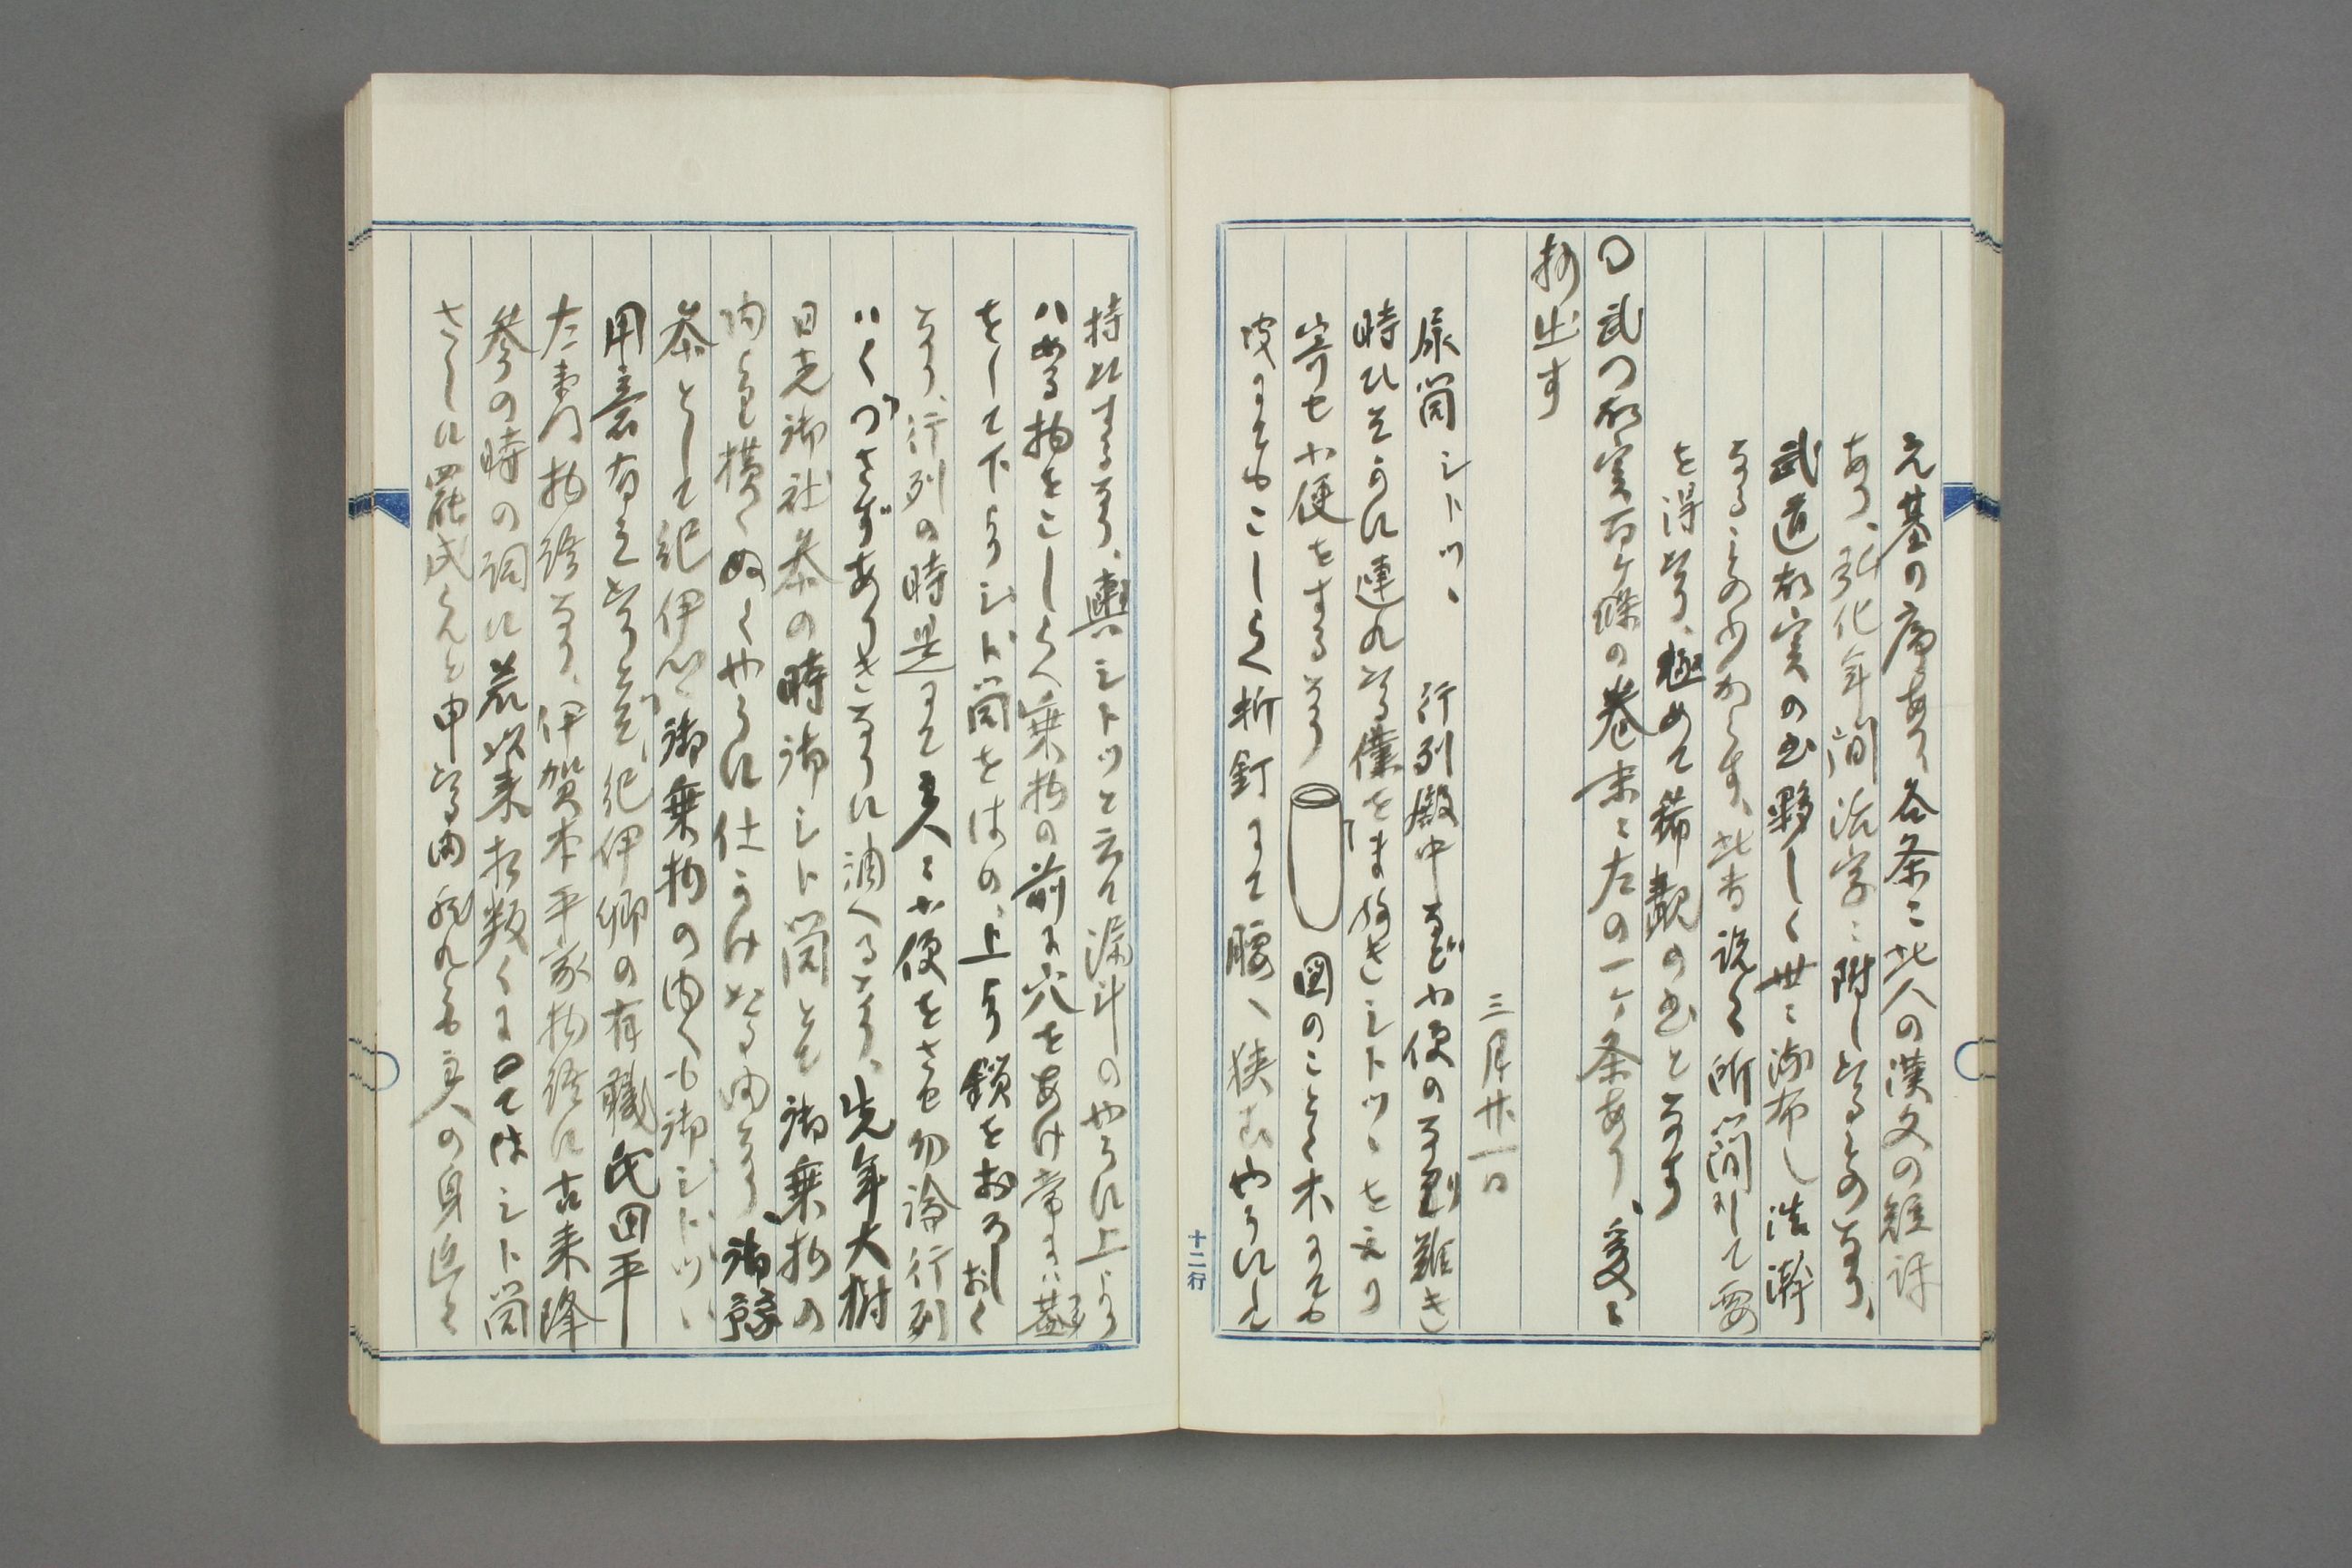 元基の序あり、各条に此人の漢文の短評
あり、弘化年間活字に附したるものなり、
武道故実の書夥しく世に流布し浩瀚
なるもの少からす、此書説く所簡にして要
を得たり、極めて稀覯の書となす
〇武門故実百ヶ條の巻末に左の一ヶ条あり、爰に
抄出す
三月廿一日
尿筒シトツヽ 行列殿中など小便の不自由難き
時ひそかに連れたる僕をまねきシトツヽを
寄せ小便をするなり 図のことく木にても
皮にてもこしらへ折釘にて腰へ狭むやうにし
持はするなり、輿シトツと云て漏斗のやうに上より
はめる物をこしらへ乗物の前に穴をあけ常には蓋
をして下よりシト筒をはめ、上より鎖をおろしおく
なり、行列の時是にて貴人に小便をさせ勿論行列
はくづさずありきなりに調へるなり、先年大樹
日光御社参の時御シト筒とて御乗物の
内より横へぬくやうに仕かけたる由なり、御豫
参として紀伊公御乗物の内へも御シトツヽ
用意有之たりとぞ、紀伊卿の有職氏田平
左衛門物語なり、伊賀本平家物語に古来降
参の時の詞に若以来相叛くにおいてはシト筒
さしに罷成らんと申たる由、然れとも貴人の身近く
十二行